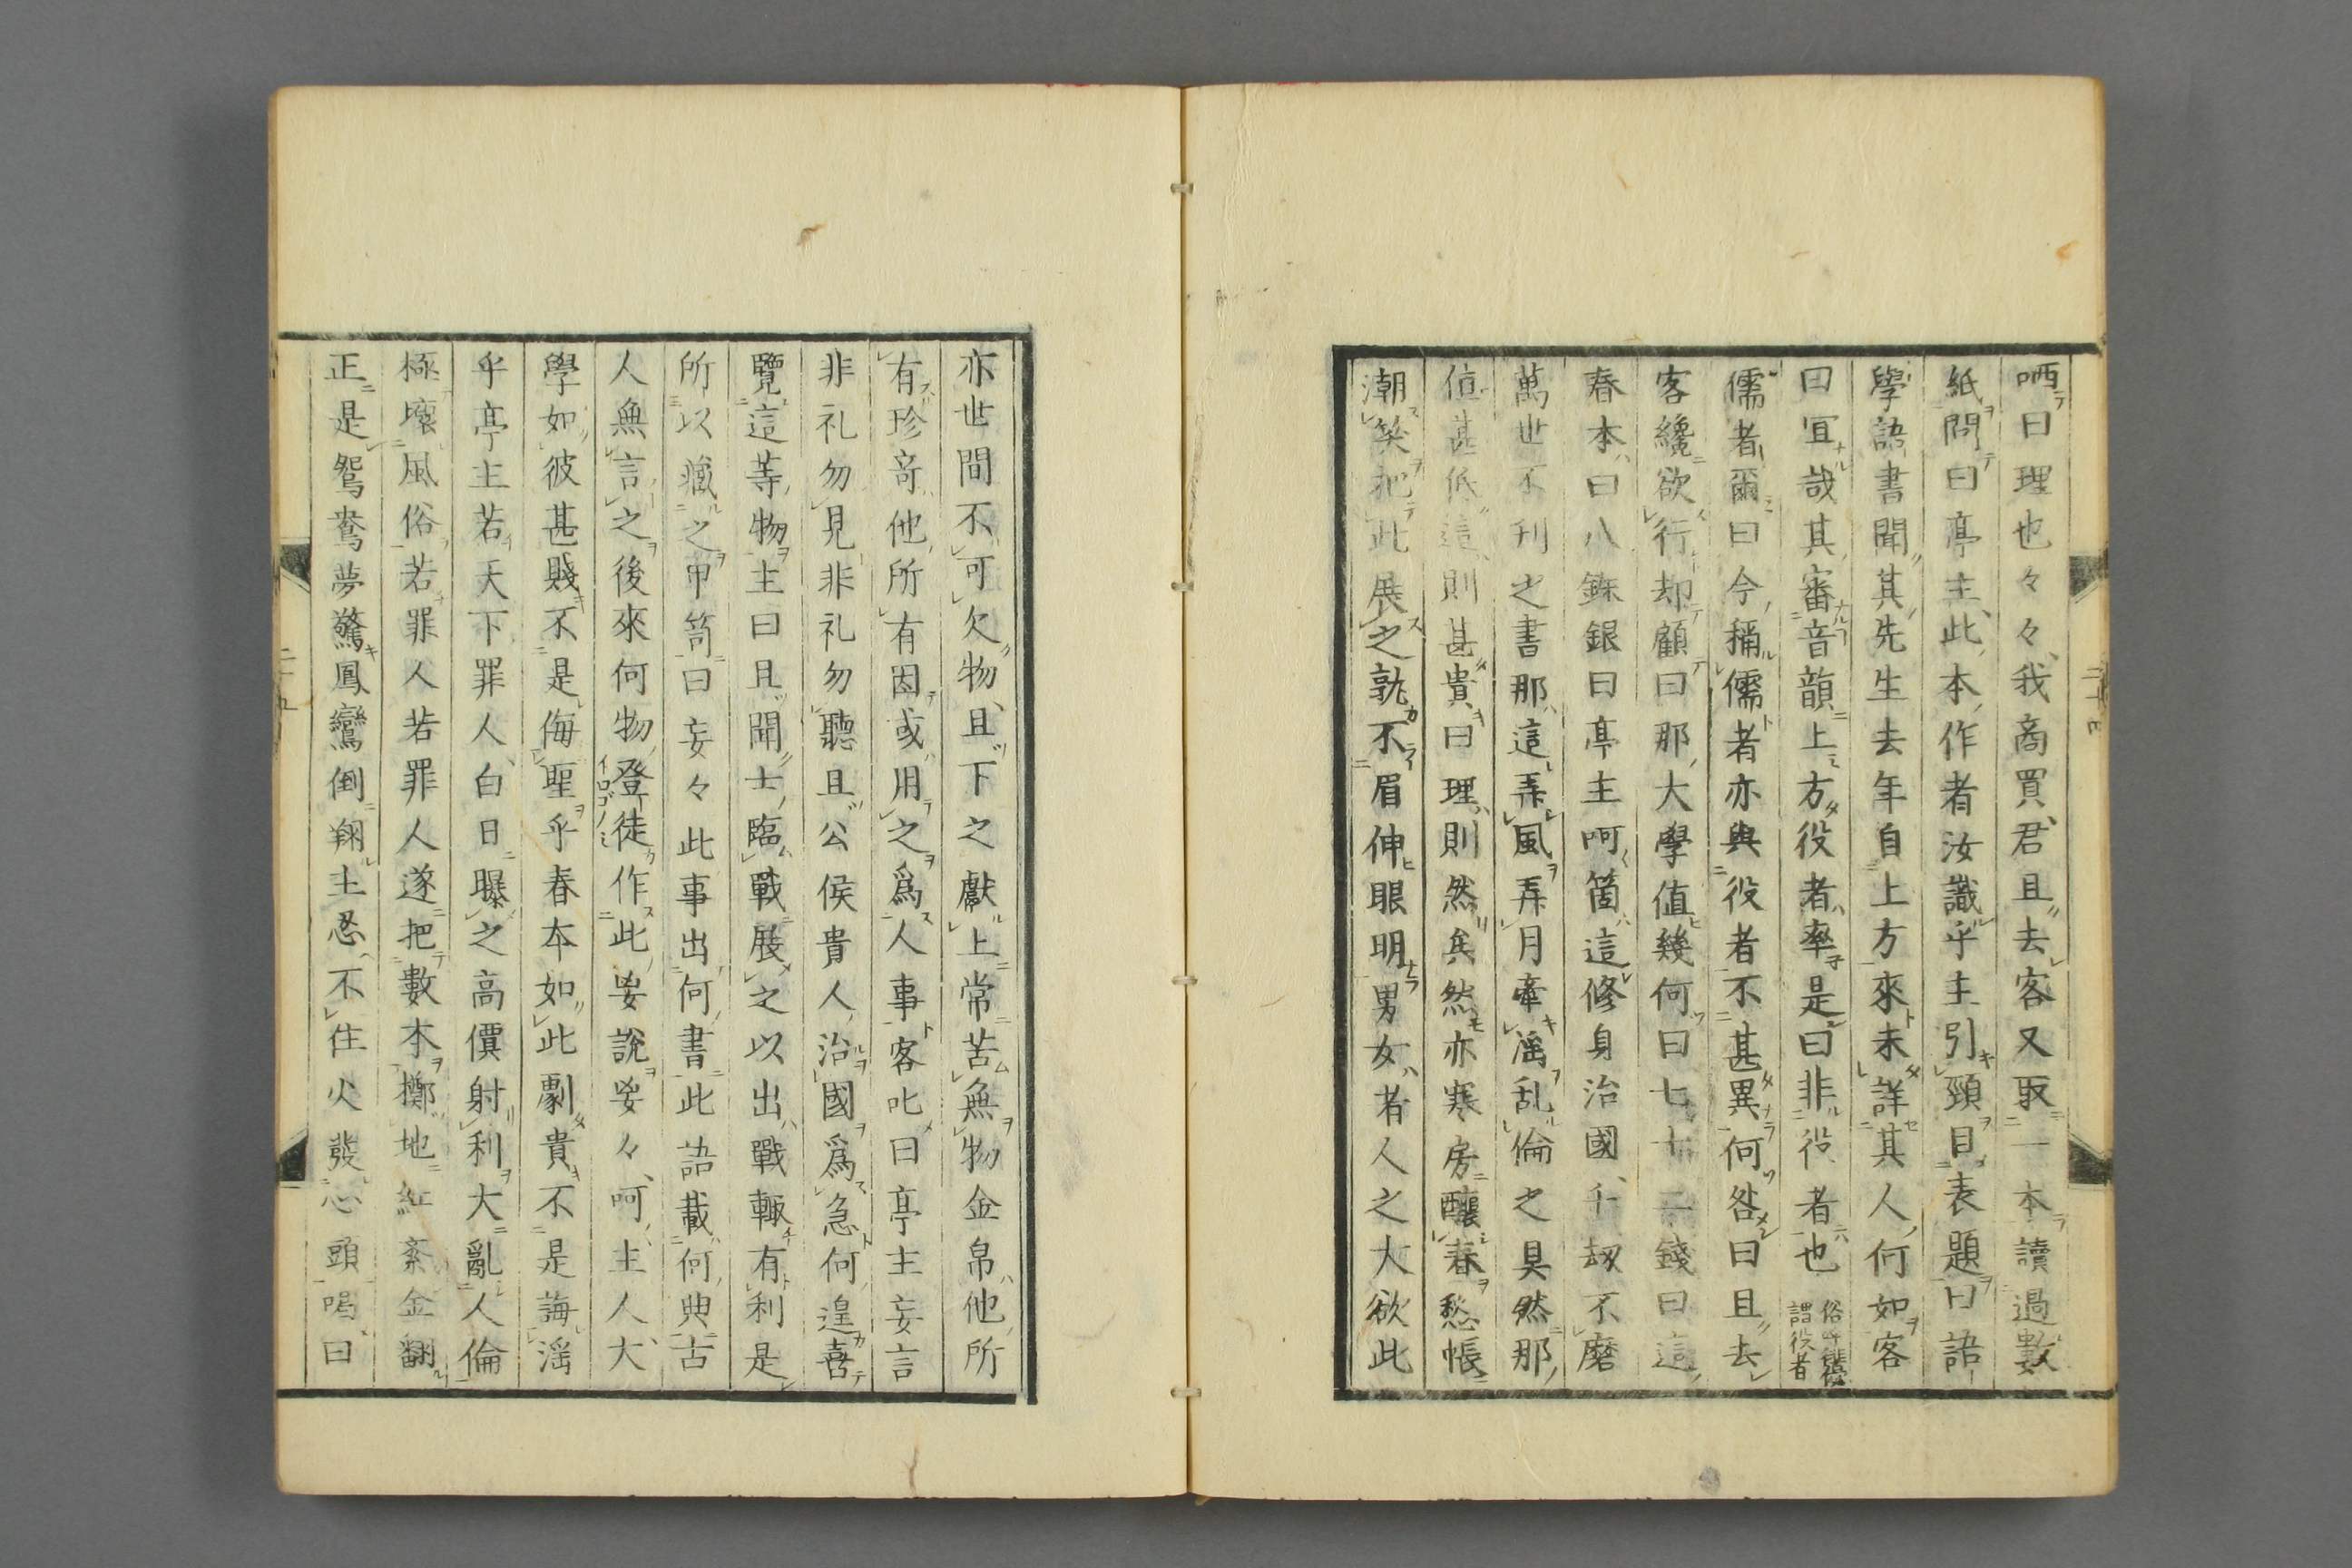 哂曰理也々々我商買君且去客又取一本讀過數
紙問曰亭主此本作者汝識乎主引頸目表題曰語
學語書聞其先生去年自上方來未詳其人何如客
曰冝哉其審音韻上方役者率是曰非役者也
謂役者
儒者爾曰今稱儒者亦與役者不甚異何咎曰且去
客纔欲行却顧曰那大學值幾何曰七十二錢曰這
春本曰八銖銀曰亭主呵箇這修身治國千劫不磨
萬世不刊之書那這弄風弄月牽滛乱倫之具然那
值甚低這則甚貴曰理則然矣然亦寒房釀春愁帳
潮笑把此展之孰不眉伸眼明男女者人之大欲此
二十四
亦世間不可欠物且下之獻上常苦無物金帛他所
有珍奇他所有因或用之爲人事客叱曰亭主妄言
非礼勿見非礼勿聽且公侯貴人治國爲急何遑喜
覽這等物主曰且聞士臨戰展之以出戰輙有利是
所以藏之甲笥曰妄々此事出何書此語載何典古
人無言之後來何物登徒作此妄說妄々呵主人大
イロゴノミ
學如彼甚賤不是侮聖乎春本如此劇貴不是誨滛
乎亭主若天下罪人白日曝之高價射利大亂人倫
極壞風俗若罪人若罪人遂把數本擲地紅紊金翻
正是鴛鴦夢驚鳳鸞倒翔主忍不住火發心頭喝曰
二十五